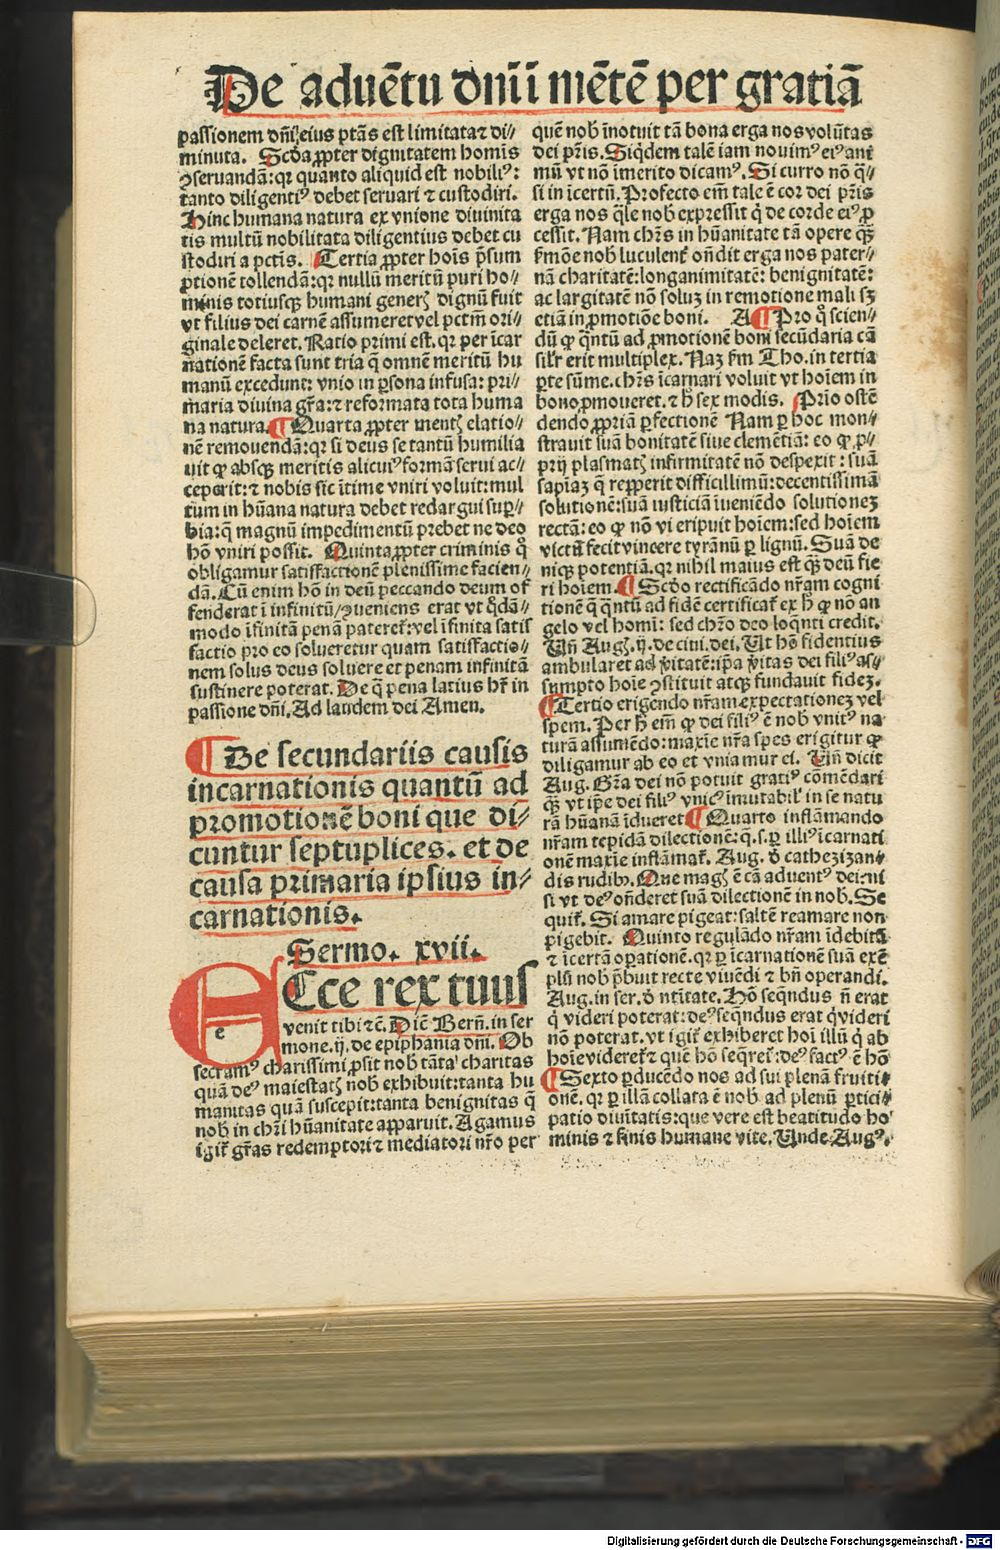 De aduētu dn̄i ī mētē per gratiā
passionem dn̄i; eius ptās est limitata ⁊ di//
minuta. Scd̄a ꝓpter dignitatem homīs
ꝯseruandā: qꝛ quanto aliquid est nobiliꝰ:
tanto diligentiꝰ debet seruari ⁊ custodiri.
Hinc humana natura ex vnione diuinita
tis multū nobilitata diligentius debet cu
stodiri a pctīs. Tertia ꝓpter hoīs p̄sum
ptionē tollendā: qꝛ nullū meritū puri ho//
minis totiusqꝫ humani generꝭ dignū fuit
vt filius dei carnē assumeret vel pctm̄ ori//
ginale deleret. Ratio primi est. qꝛ per īcar
nationē facta sunt tria q̄ omnē meritū hu
manū excedunt: vnio in ꝑsona infusa: pri//
maria diuina gr̄a: ⁊ reformata tota huma
na natura. ¶ Quarta ꝓpter mentꝭ elatio//
nē remouendā: qꝛ si deus se tantū humilia
uit ꝙ absqꝫ meritis alicuiꝰ formā serui ac//
ceperit: ⁊ nobis sic ītime vniri voluit: mul
tum in hūana natura debet redargui suꝑ//
bia: q̄ magnū impedimentū prebet ne deo
hō vniri possit. Quinta ꝓpter criminis qͦ
obligamur satisfactionē plenissime facien//
dā. Cū enim hō in deū peccando deum of
fenderat ī infinitū / ꝯueniens erat vt qͦdā//
modo īfinitā penā pateret̄: vel īfinita satis
factio pro eo solueretur quam satisfactio//
nem solus deus soluere et penam infinitā
sustinere poterat. De q̄ pena latius hr̄ in
passione dn̄i. Ad laudem dei Amen.
¶ De secundariis causis
incarnationis quantū ad
promotionē boni que di//
cuntur septuplices. et de
causa primaria ipsius in//
carnationis.
Sermo. xvii.
e Cce rex tuus
venit tibi ⁊c̄. Dicē Bern̄. in ser
mone. ij. de epiphania dn̄i. Ob
secramꝰ charissimi ꝓsit nob̄ tāta charitas
quā deꝰ maiestatꝭ nob̄ exhibuit: tanta hu
manitas quā suscepit: tanta benignitas q̄
nob̄ in chr̄i hūanitate apparuit. Agamus
igit̄ gr̄as redemptori ⁊ mediatori nr̄o per
quē nob̄ īnotuit tā bona erga nos volūtas
dei pr̄is. Siqdem talē iam nouimꝰ eiꝰ ani
mū vt nō īmerito dicamꝰ. Si curro nō q̄//
si in īcertū. Profecto em̄ tale ē cor dei pr̄is
erga nos q̄le nob̄ expressit q̇ de corde eiꝰ ꝓ
cessit. Nam chr̄s in hūanitate tā opere qꝫ̄
ẜmōe nob̄ luculent̄ on̄dit erga nos pater//
nā charitatē: longanimitatē: benignitatē:
ac largitatē nō soluꝫ in remotione mali sꝫ
etiā in ꝓmotiōe boni. A ¶ Pro qͦ scien//
dū ꝙ q̄ntū ad ꝓmotionē boni secūdaria cā
sil̄r erit multiplex. Naꝫ ẜm Tho. in tertia
ꝑte sūme. chr̄s īcarnari voluit vt hoīem in
bono ꝓmoueret. ⁊ h̄ sex modis. Prīo ostē
dendo ꝓpriā ꝑfectionē Nam ꝑ hoc mon//
strauit suā bonitatē siue clemētiā: eo ꝙ ꝓ//
prij plasmatꝭ infirmitatē nō despexit: suā
sapīaꝫ q̄ repperit difficillimū: decentissimā
solutionē: suā iusticiā īueniēdo solutioneꝫ
rectā: eo ꝙ nō vi eripuit hoīem: sed hoīem
victū fecit vincere tyrānū ꝑ lignū. Suā de
niqꝫ potentiā. qꝛ nihil maius est qꝫ̄ deū fie
ri hoīem. ¶ Scd̄o rectificādo nr̄am cogni
tionē q̄ q̄ntū ad fidē certificat̄ ex h̄ ꝙ nō an
gelo vel homī: sed chr̄o deo loqn̄ti credit.
Vn̄ Augꝭ. ij. de ciui. dei. Ut hō fidentius
ambularet ad v̄itatē: ip̄a v̄itas dei filiꝰ as//
sumpto hoīe ꝯstituit atqꝫ fundauit fideꝫ.
¶ Tertio erigendo nr̄am expectationeꝫ vel
spem. Per h̄ em̄ ꝙ dei filiꝰ ē nob̄ vnitꝰ na
turā assumēdo: maxīe nr̄a spes erigitur ꝙ
diligamur ab eo et vniamur ei. Vn̄ dicit
Aug. Gr̄a dei nō potuit gratiꝰ cōmēdari
qꝫ̄ vt ip̄e dei filiꝰ vnicꝰ īmutabil̄ in se natu
rā hūanā īdueret ¶ Quarto inflāmando
nr̄am tepidā dilectionē: q. s. ꝑ illiꝰ īcarnati
onē maxīe inflāmat̄. Aug. d̄ cathezizan//
dis rudibꝫ. Que magꝭ ē cā aduentꝰ dei: ni
si vt deꝰ on̄deret suā dilectionē in nob̄. Se
quit̄. Si amare pigeat: saltē reamare non
pigebit. Quinto regulādo nr̄am īdebitā
⁊ īcertā oꝑationē. qꝛ ꝑ īcarnationē suā exē
plū nob̄ p̄buit recte viuēdi ⁊ bn̄ operandi.
Aug. in ser. d̄ nt̄itate. Hō seqn̄dus n̄ erat
q̇ videri poterat: deꝰ seqn̄dus erat q̇ videri
nō poterat. vt igit̄ exhiberet hoī illū q̇ ab
hoīe videret̄ ⁊ quē hō seq̄ret̄: deꝰ factꝰ ē hō
¶ Sexto ꝑducēdo nos ad sui plenā fruiti//
onē. qꝛ ꝑ illā collata ē nob̄ ad plenū ꝑtici//
patio diuītatis: que vere est beatitudo ho//
minis ⁊ finis humane vite. Unde Augꝰ.
Digitalisierung gefördert durch die Deutsche Forschungsgemeinschaft - DFG